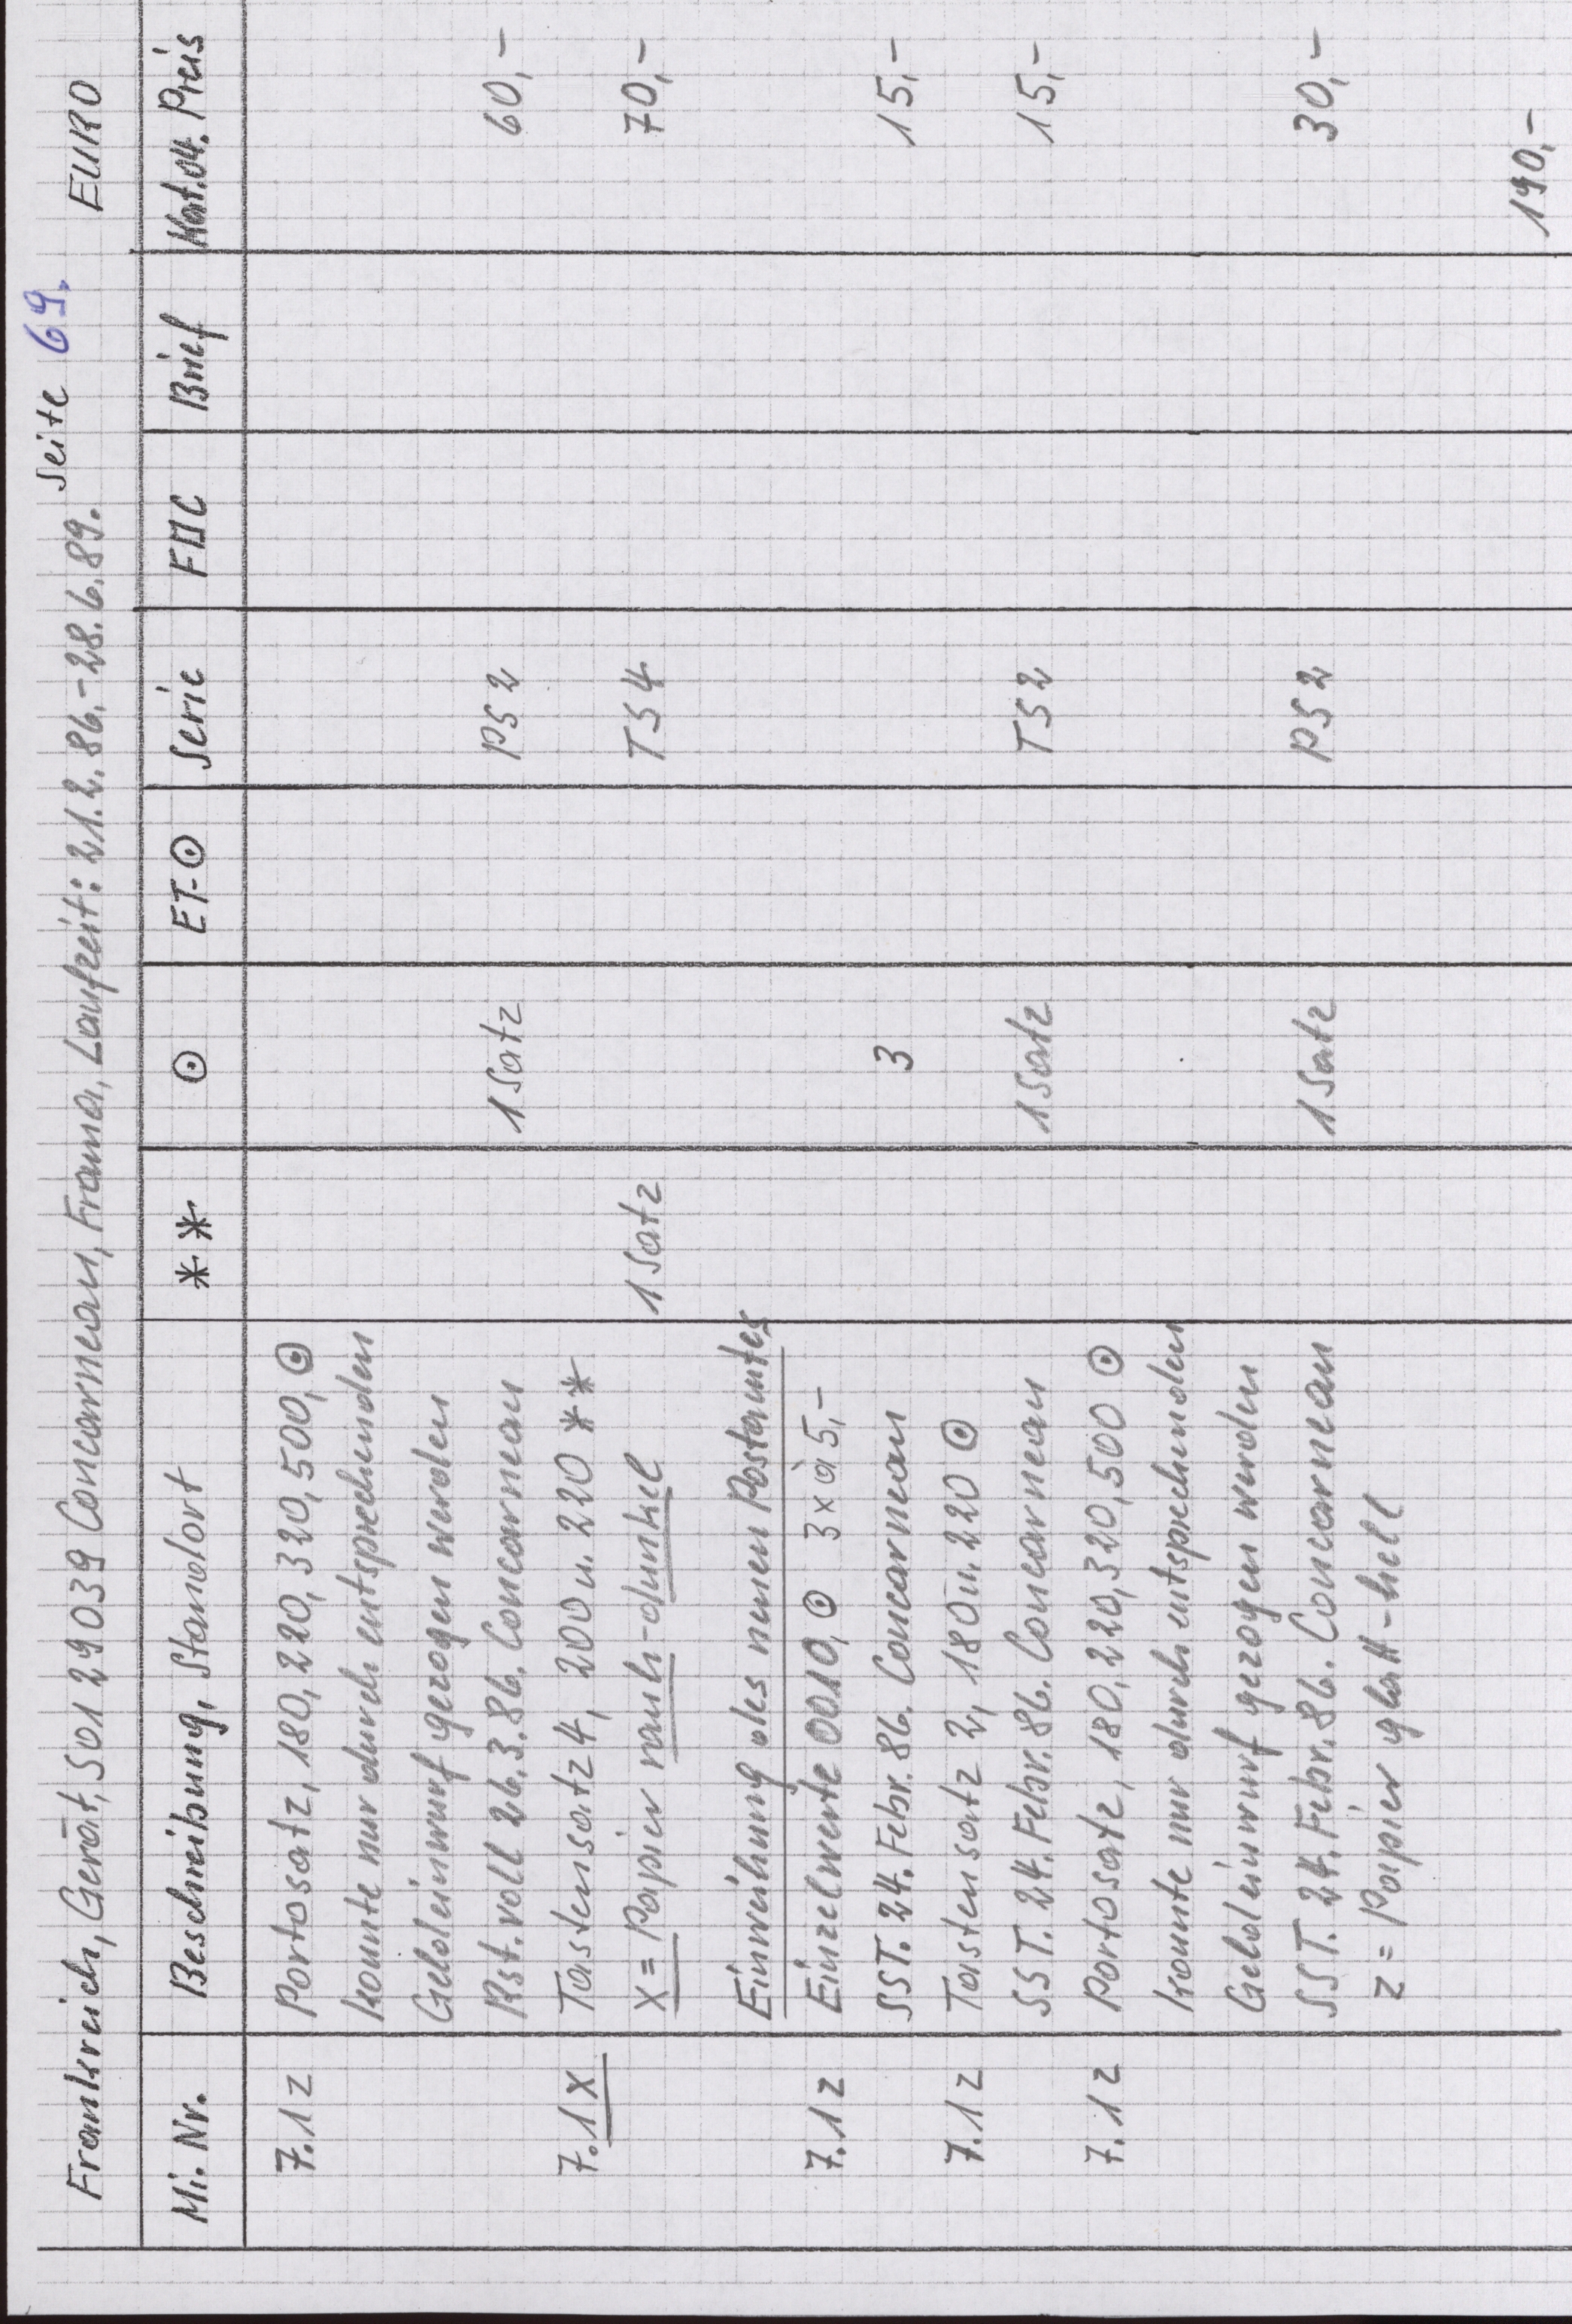 Seite 69.
Frankreich, Gerät, 501 29039 Concarneau, Frama, Laufzeit: 21.2.86.-28.6.89. EURO
Mi. Nr. Bescheibung, Standort ** ⊙ ET-⊙ Serie FDC Brief Kat.04. Preis
7.1z Portosatz, 180, 220, 320, 500, ⊙
konnte nur durch entsprechenden
Geldeinwurf gezogen werden
Rst. voll 26.3.86. Concarneau 1 Satz PS 2 60,-
7.1x Tastensatz 4, 200 u. 220 **
x = Papier rauh-dunkel 1 Satz TS 4 70,-
Einweihung des neuen Postamtes
7.1z Einzelwerte 0010, ⊙ 3 x à 5,-
SST. 24. Febr. 86. Concarneau 3 15,-
7.1z Tastensatz 2, 180 u. 220 ⊙
SST. 24. Febr. 86. Concarneau 1 Satz TS 2 15,-
7.1z Portosatz, 180, 220, 320, 500 ⊙
konnte nur durch entsprechenden
Geldeinwurf gezogen werden
SST. 24. Febr. 86. Concarneau 1 Satz PS 2 30,-
z = Papier glatt-hell
190,-